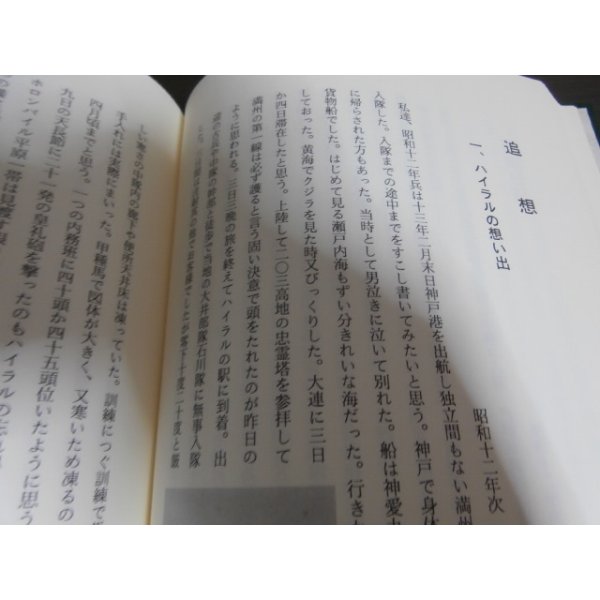 追想
一、ハイラルの想い出
昭和十二年次
私達、昭和十二年兵は十三年二月末日神戸港を出航し独立間もない満州
入隊した。入隊までの途中までをすこし書いてみたいと思う。神戸で身体
に帰らされた方もあった。当時として男泣きに泣いて別れた。船は神愛丸
貨物船でした。はじめて見る瀬戸内海もずい分きれいな海だった。行き
しておった。黄海でクジラを見た時又びっくりした。大連に三日
か四日滞在したと思う。上陸して二〇三高地の忠霊塔を参拝して
満州の第一線は必ず護ると言う固い決意で頭をたれたのが昨日の
ように思われる。三日三晩の旅を終えてハイラルの駅に到着。出
迎の古兵や中隊の幹部と徒歩で当地の大井部隊石川隊に無事入隊
でお客様でしたが零下十度二十度と厳
しい寒さの中隊内の廊下も便所天井床は凍っていた。訓練につぐ訓練で
手入れには実際にまいった。甲種馬で図体が大きく、又寒いため凍るの
四月頃までと思う。一つの内務班に四十頭か四十五頭位いたように思う
九日の天長節に二十一発の皇礼砲を撃ったのもハイラルの
ホロンバイル平原一帯は見渡す限